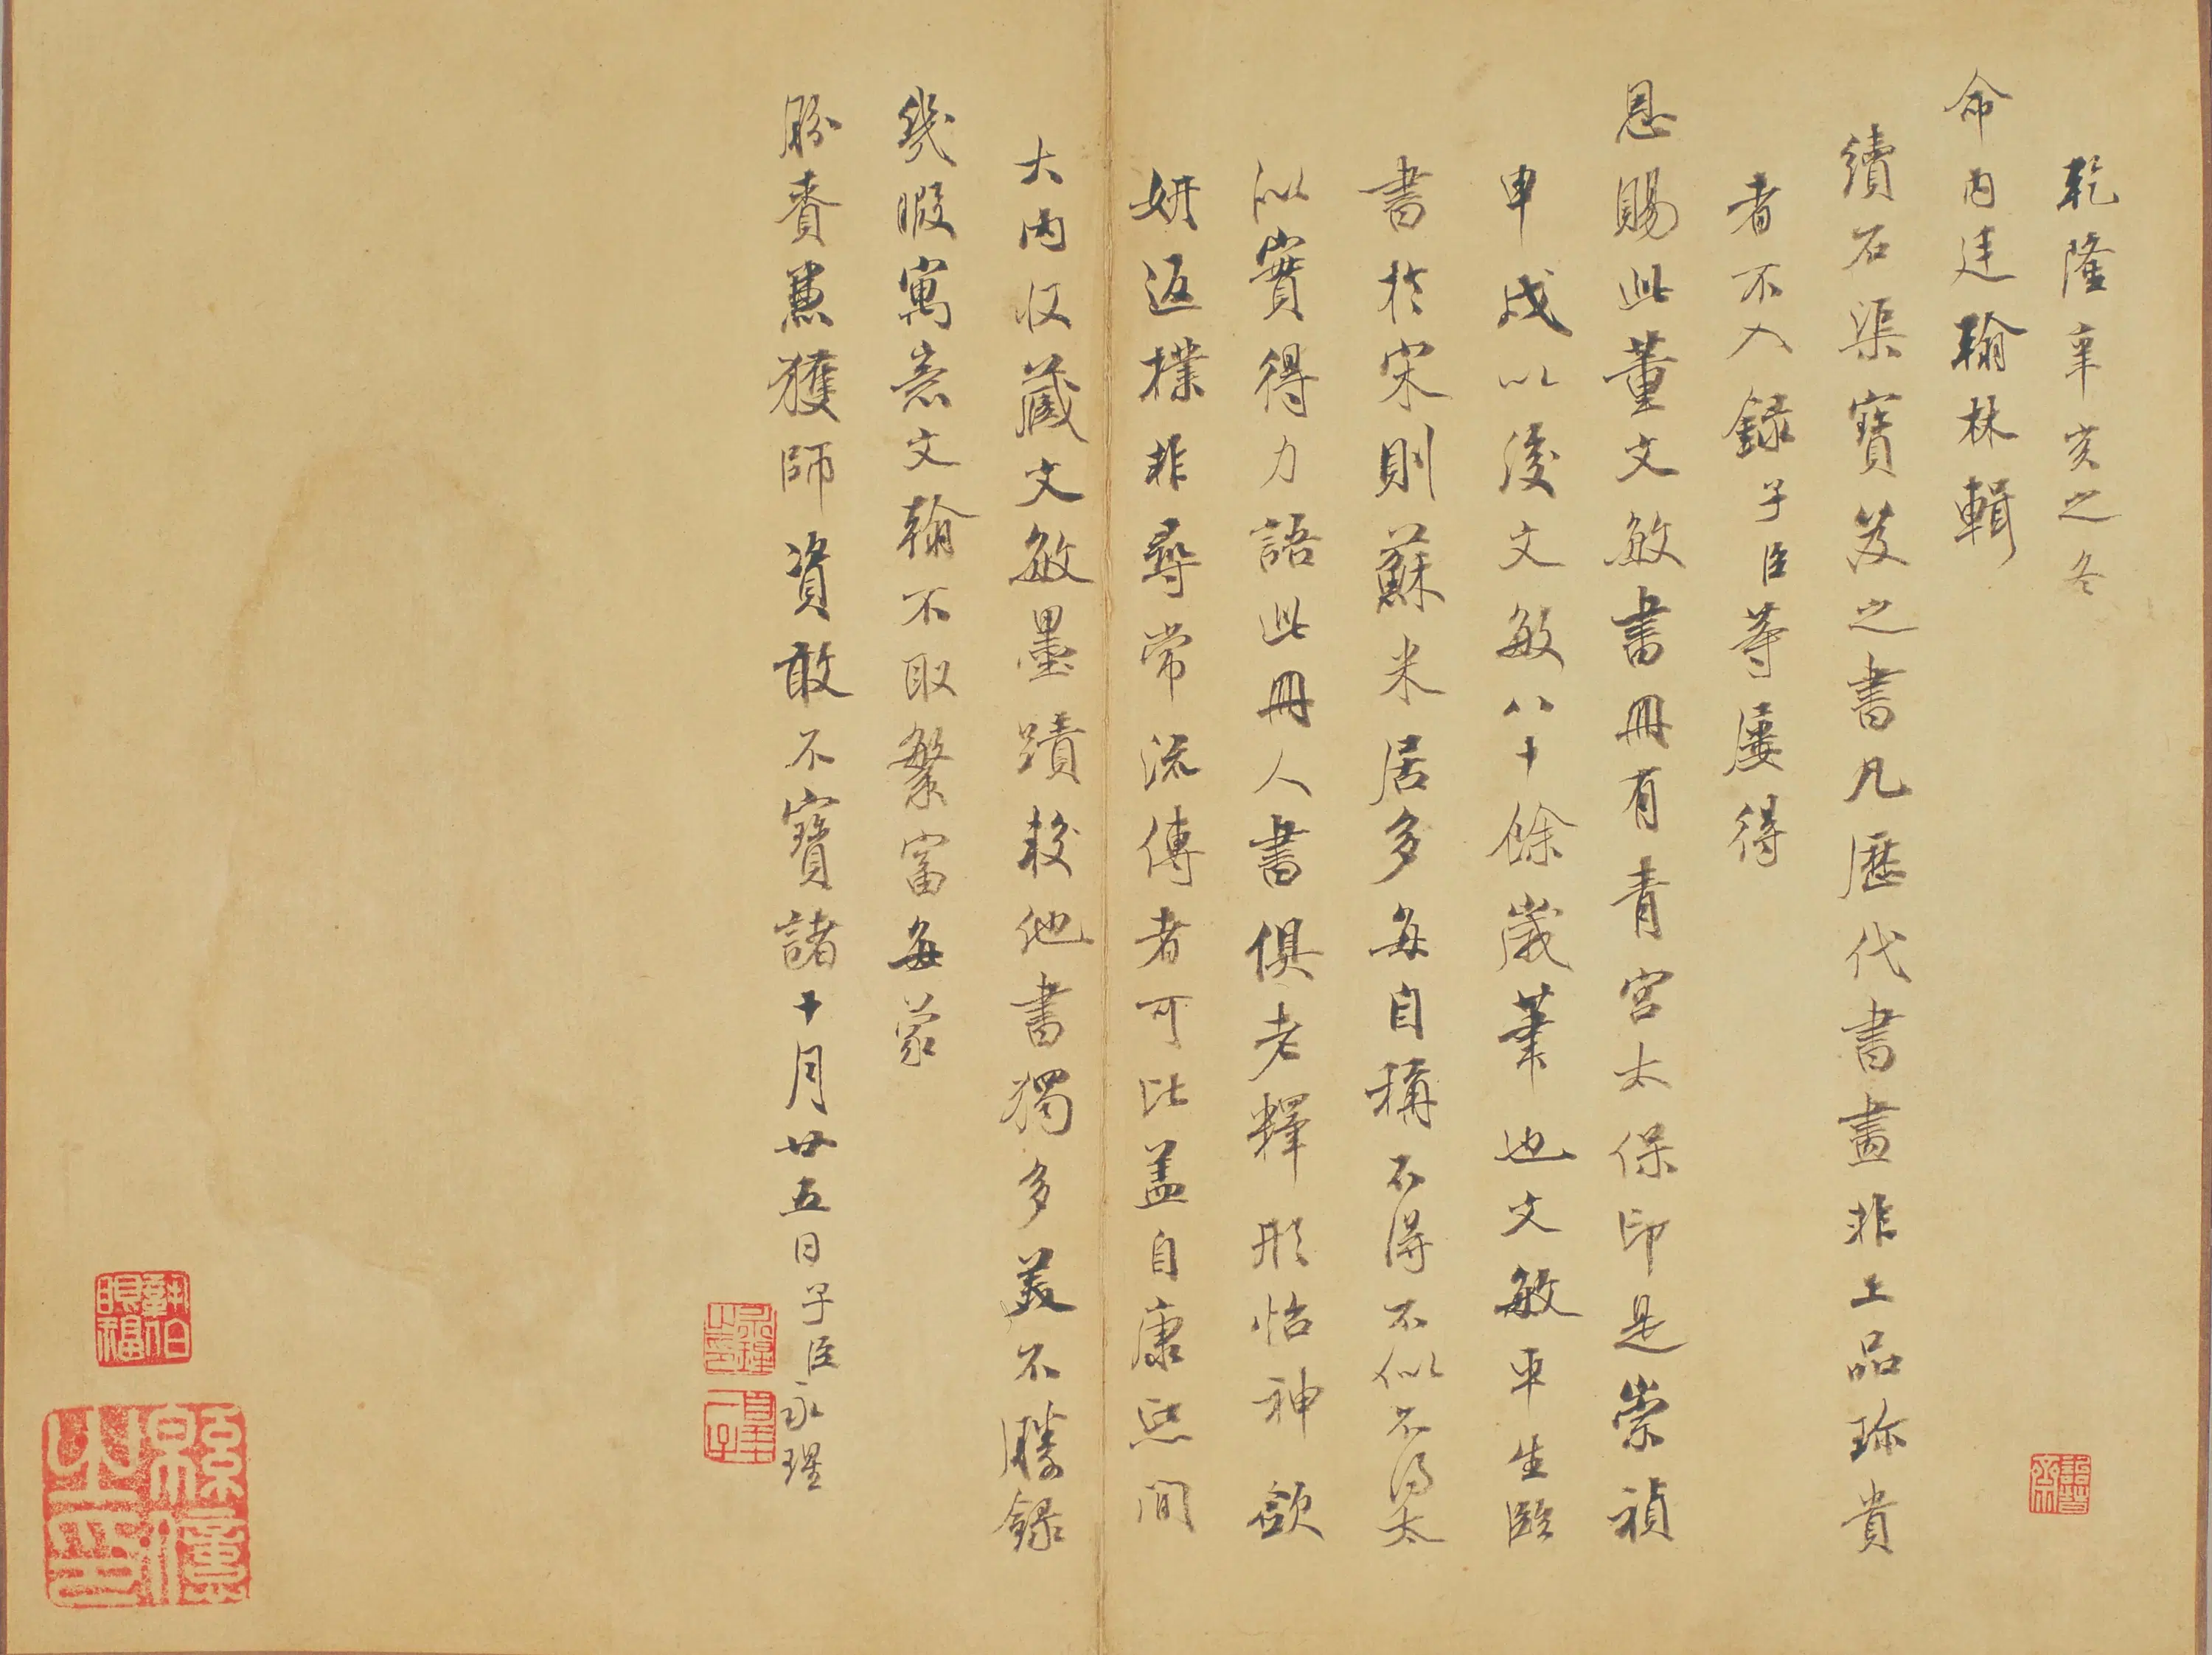 乾隆辛亥之冬
命內廷翰林輯
續石渠寶笈之書凡歷代書畫非上品珎貴
者不入録子臣等屢得
恩賜此董文敏書冊有青宮太保印是崇禎
申戌以後文敏八十餘歲筆也文敏平生臨
書於宋則蘇米居多每自稱不得不似不得太
似實得力語此冊人書俱老釋形怡神斂
妍返撲非尋常流傳者可比盖自康熙間
大內收藏文敏墨蹟較他書獨多美不勝録
幾暇寓意文翰不取繁富每蒙
賚兼獲師資敢不寶諸十月廿五日子臣永瑆
永瑆之印
皇十一子
韓伯眼福